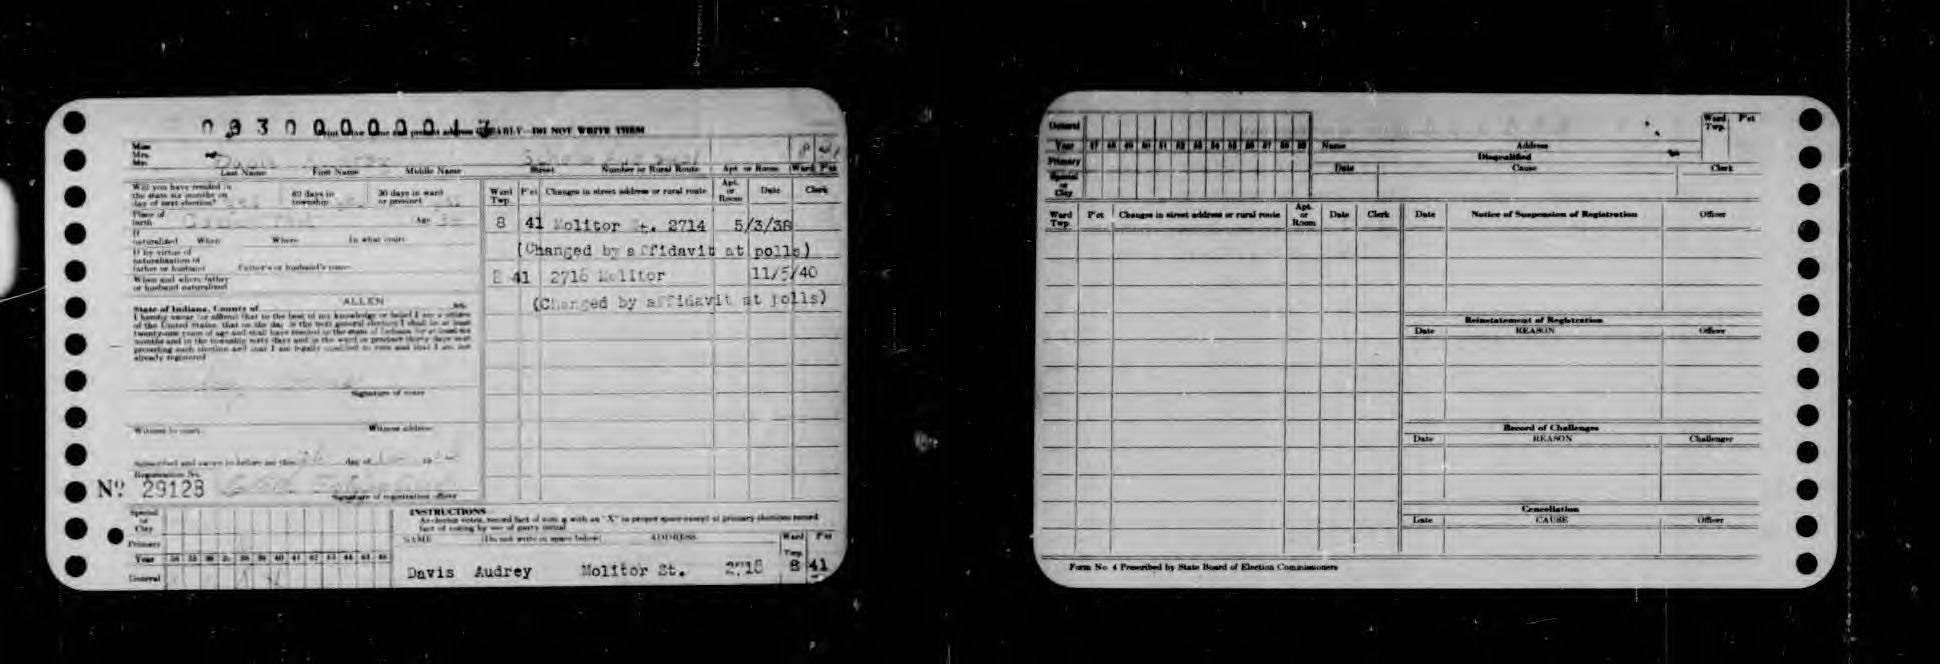 0930000017
Print your name and present address CLEARLY—DO NOT WRITE THEM
Miss
Mrs.
Mr.
Davis
Last Name First Name Middle Name Street Number or Rural Route Apt. or Room Ward P'ct
Will you have resided in the state six months on day of next election? 60 days in township 30 days in ward or precinct
Place of birth Age
If naturalized When Where In what court
If by virtue of naturalization of father or husband Father's or husband's name
When and where father or husband naturalized
State of Indiana, County of ALLEN ss.
I hereby swear (or affirm) that to the best of my knowledge or belief I am a citizen
of the United States; that on the day of the next general election I shall be at least
twenty-one years of age and shall have resided in the state of Indiana for at least six
months and in the township sixty days and in the ward or precinct thirty days next
preceding such election and that I am legally qualified to vote and that I am not
already registered
Signature of voter
Witness to mark Witness address
Subscribed and sworn to before me this day of 19
Registration No.
No. 29128
Signature of registration officer
Ward Twp. P'ct Changes in street address or rural route Apt. or Room Date Clerk
8 41 Molitor St. 2714 5/3/38
(Changed by affidavit at polls)
8 41 2716 Molitor 11/5/40
(Changed by affidavit at polls)
Special or City
Primary
Year 34 35 36 37 38 39 40 41 42 43 44 45 46
General
INSTRUCTIONS
As elector votes, record fact of voting with an "X" in proper space except at primary elections record
fact of voting by use of party initial
NAME (Do not write in space below) ADDRESS Ward Twp. P'ct
Davis Audrey Molitor St. 2716 8 41
General
Year 47 48 49 50 51 52 53 54 55 56 57 58 59
Primary
Special or City
Name Address Ward Twp. P'ct
Disqualified
Date Cause Clerk
Ward Twp. P'ct Changes in street address or rural route Apt. or Room Date Clerk
Date Notice of Suspension of Registration Officer
Reinstatement of Registration
Date REASON Officer
Record of Challenges
Date REASON Challenger
Cancellation
Date CAUSE Officer
Form No. 4 Prescribed by State Board of Election Commissioners